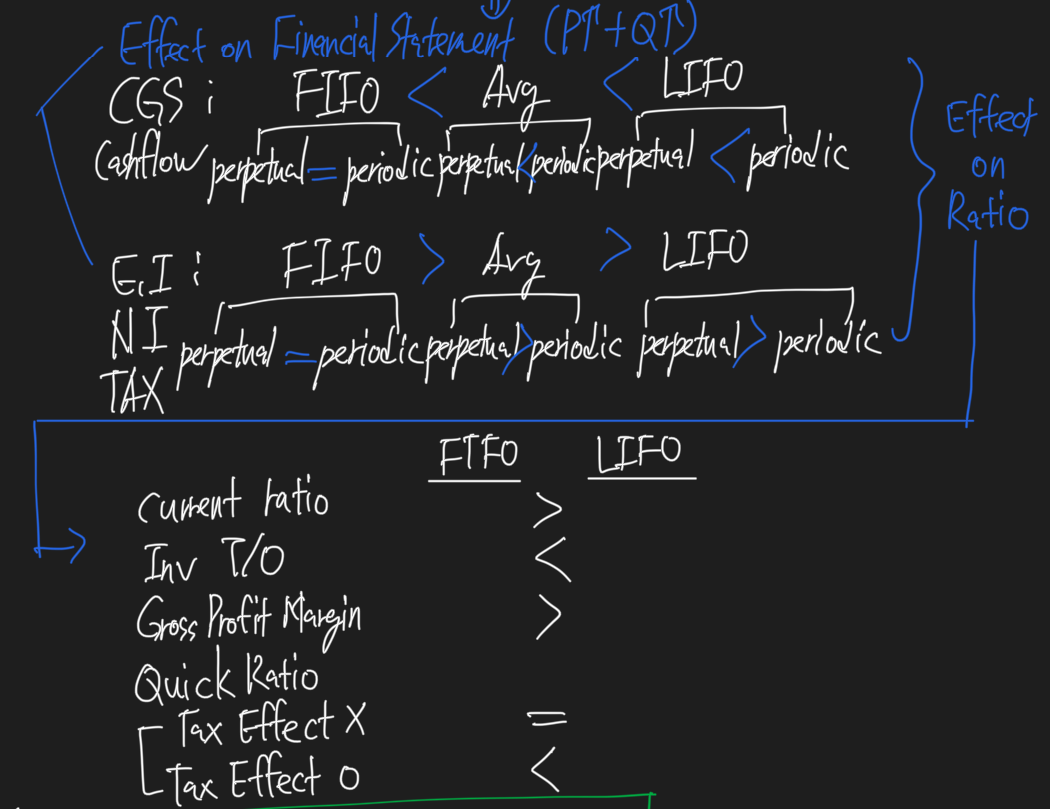 ①
Effect on Financial Statement (P↑+Q↑)
CGS : FIFO < Avg < LIFO
Cashflow perpetual = periodic perpetual < periodic perpetual < periodic
Effect
on
Ratio
E.I : FIFO > Avg > LIFO
NI perpetual = periodic perpetual > periodic perpetual > periodic
TAX
FIFO LIFO
Current ratio >
Inv T/O <
Gross Profit Margin >
Quick Ratio
Tax Effect X =
Tax Effect O <